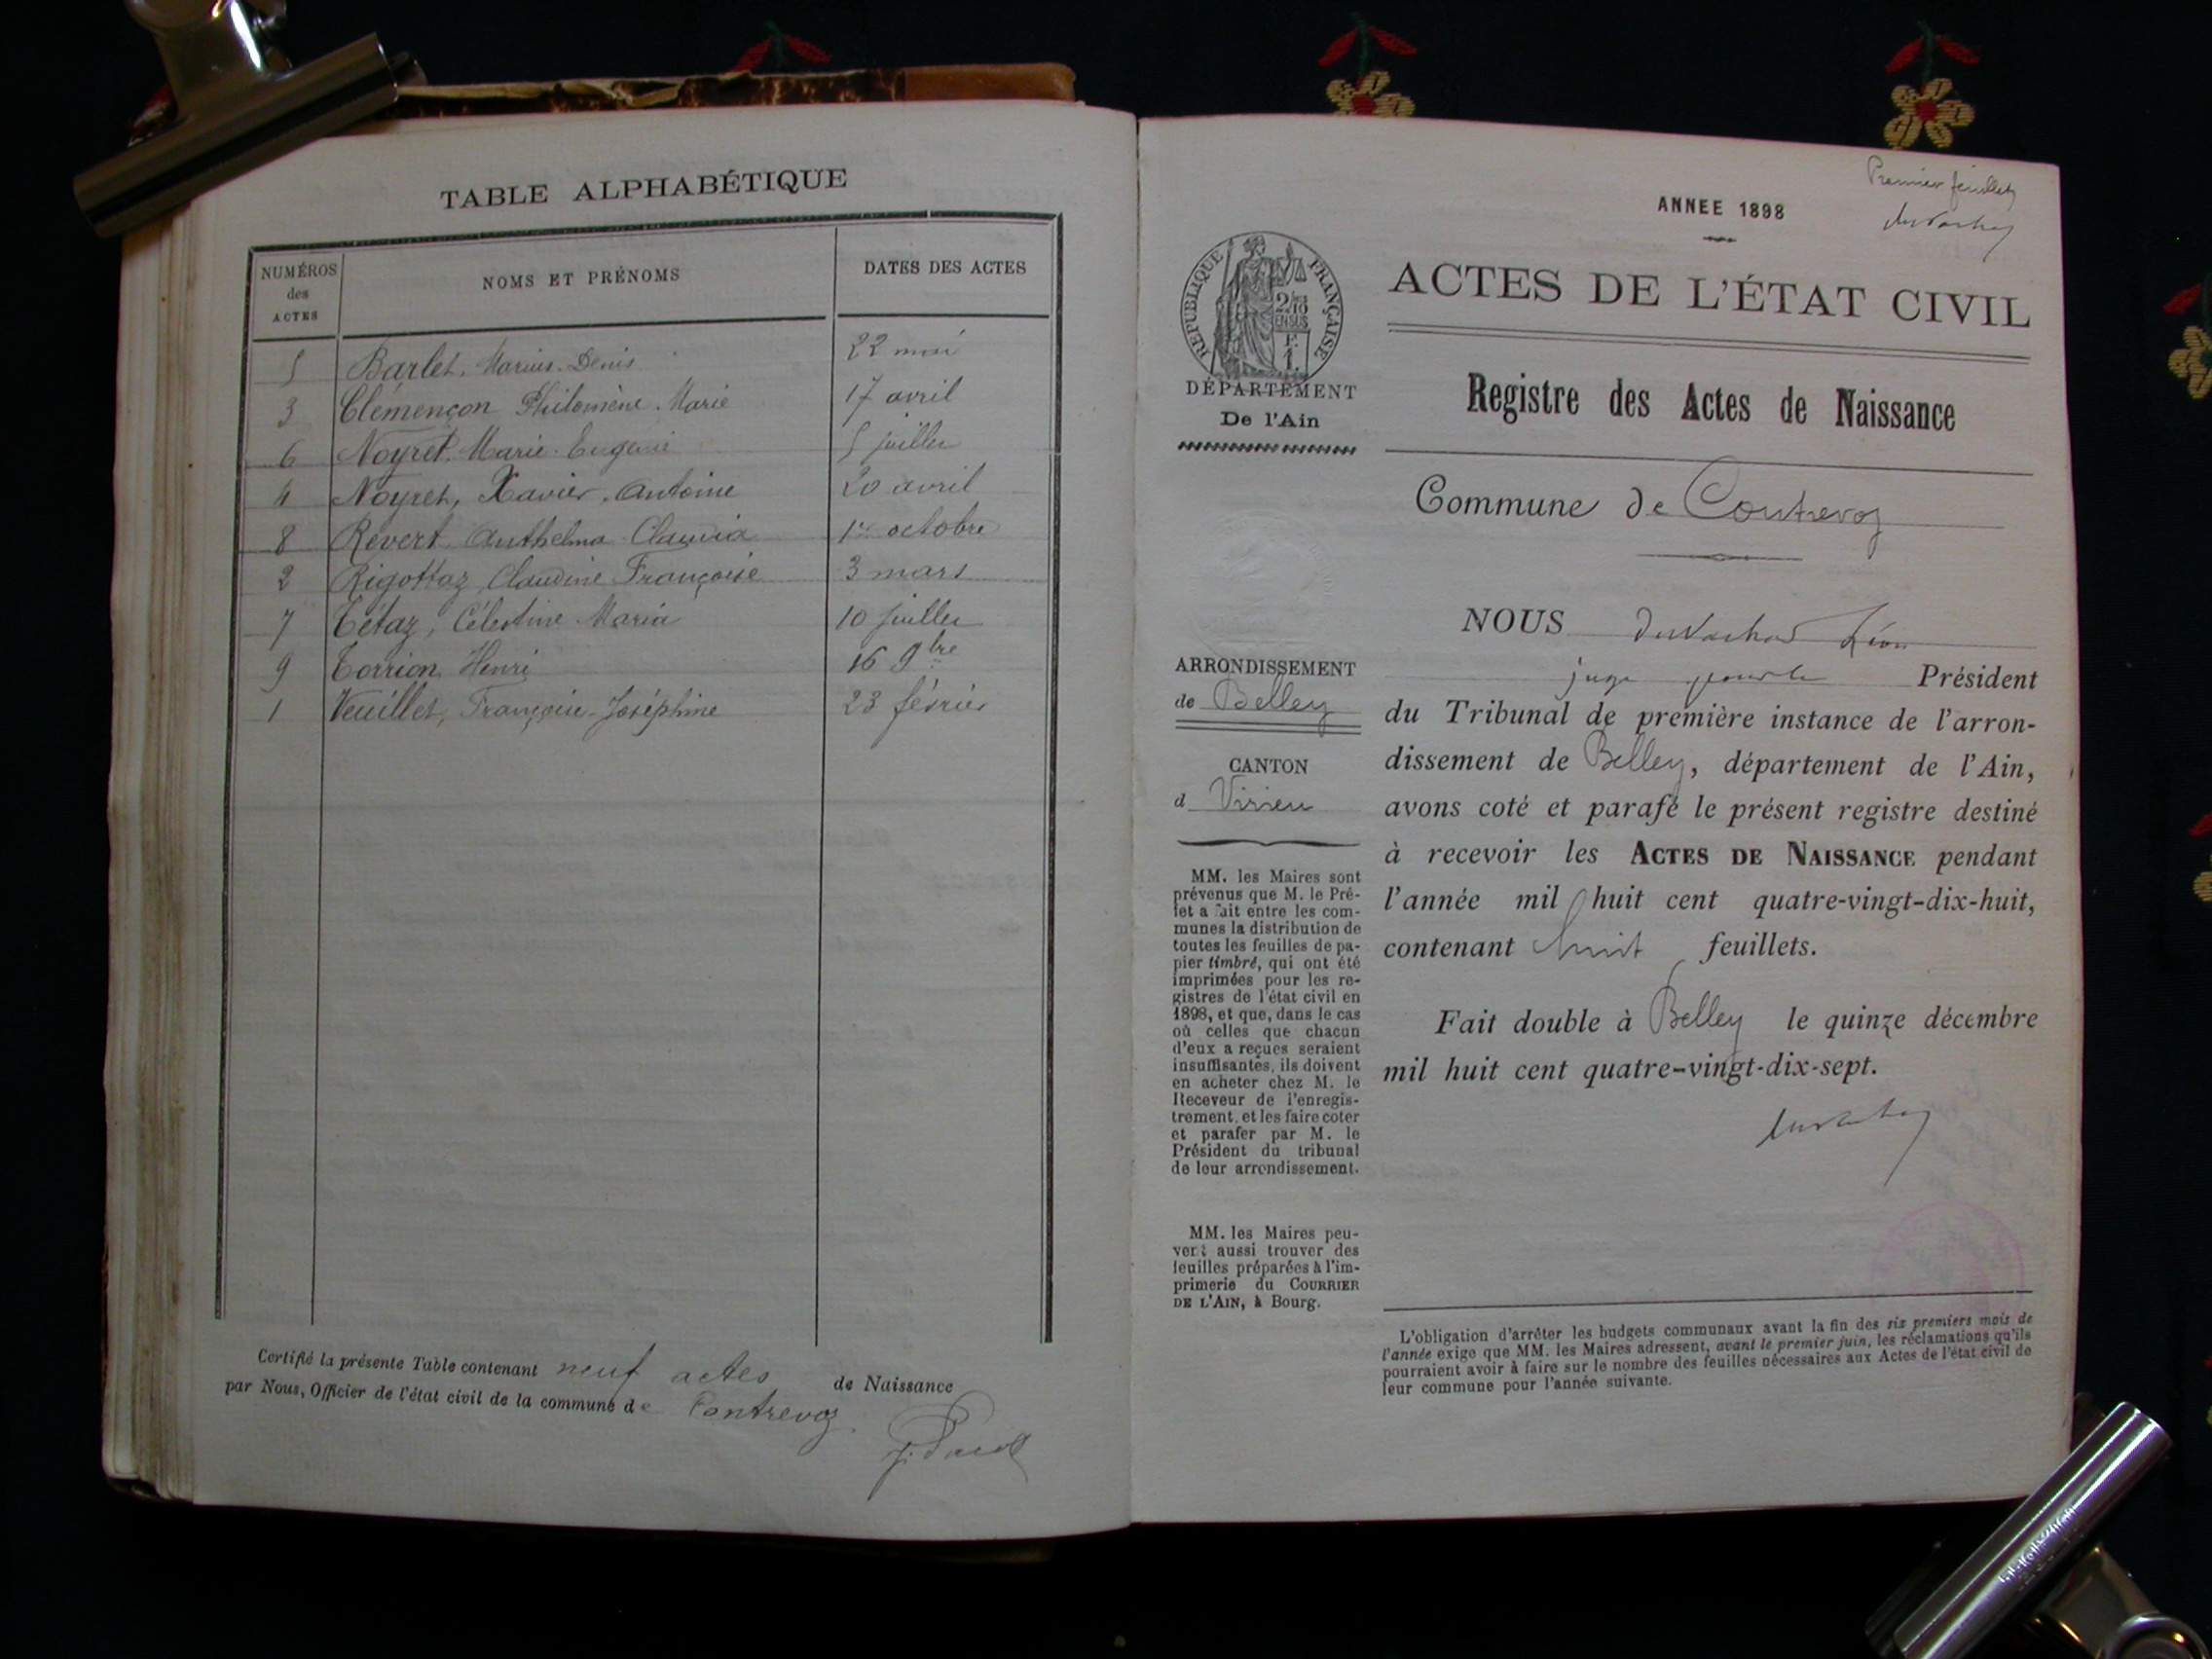 TABLE ALPHABÉTIQUE
NUMÉROS des ACTES
NOMS ET PRÉNOMS
DATES DES ACTES
5 Barlet, Marius-Denis 22 mai
3 Clémençon Philomène-Marie 17 avril
6 Noyret, Marie-Eugenie 5 juillet
4 Noyret, Xavier, Antoine 20 avril
8 Revert Anthelma-Claudia 1er octobre
2 Rigottaz Claudine Françoise 3 mars
7 Tétaz, Célestine-Maria 10 juillet
9 Torrion Henri 16 9bre
1 Veuillet, Françoise-Joséphine 23 février
Certifié la présente Table contenant neuf actes de Naissance
par Nous, Officier de l'état civil de la commune de Contrevoz
Premier feuillet
ANNEE 1898
RÉPUBLIQUE FRANÇAISE
ACTES DE L'ÉTAT CIVIL
DÉPARTEMENT
De l'Ain
Registre des Actes de Naissance
Commune de Contrevoz
NOUS Léon
juge pour le Président
ARRONDISSEMENT
de Belley
CANTON
d Virieu
du Tribunal de première instance de l'arron-
dissement de Belley, département de l'Ain,
avons coté et parafé le présent registre destiné
à recevoir les ACTES DE NAISSANCE pendant
l'année mil huit cent quatre-vingt-dix-huit,
contenant huit feuillets.
Fait double à Belley le quinze décembre
mil huit cent quatre-vingt-dix-sept.
MM. les Maires sont
prévenus que M. le Pré-
fet a fait entre les com-
munes la distribution de
toutes les feuilles de pa-
pier timbré, qui ont été
imprimées pour les re-
gistres de l'état civil en
1898, et que, dans le cas
où celles que chacun
d'eux a reçues seraient
insuffisantes, ils doivent
en acheter chez M. le
Receveur de l'enregis-
trement, et les faire coter
et parafer par M. le
Président du tribunal
de leur arrondissement.
MM. les Maires peu-
vent aussi trouver des
feuilles préparées à l'im-
primerie du COURRIER
DE L'AIN, à Bourg.
L'obligation d'arrêter les budgets communaux avant la fin des six premiers mois de
l'année exige que MM. les Maires adressent, avant le premier juin, les réclamations qu'ils
pourraient avoir à faire sur le nombre des feuilles nécessaires aux Actes de l'état civil de
leur commune pour l'année suivante.